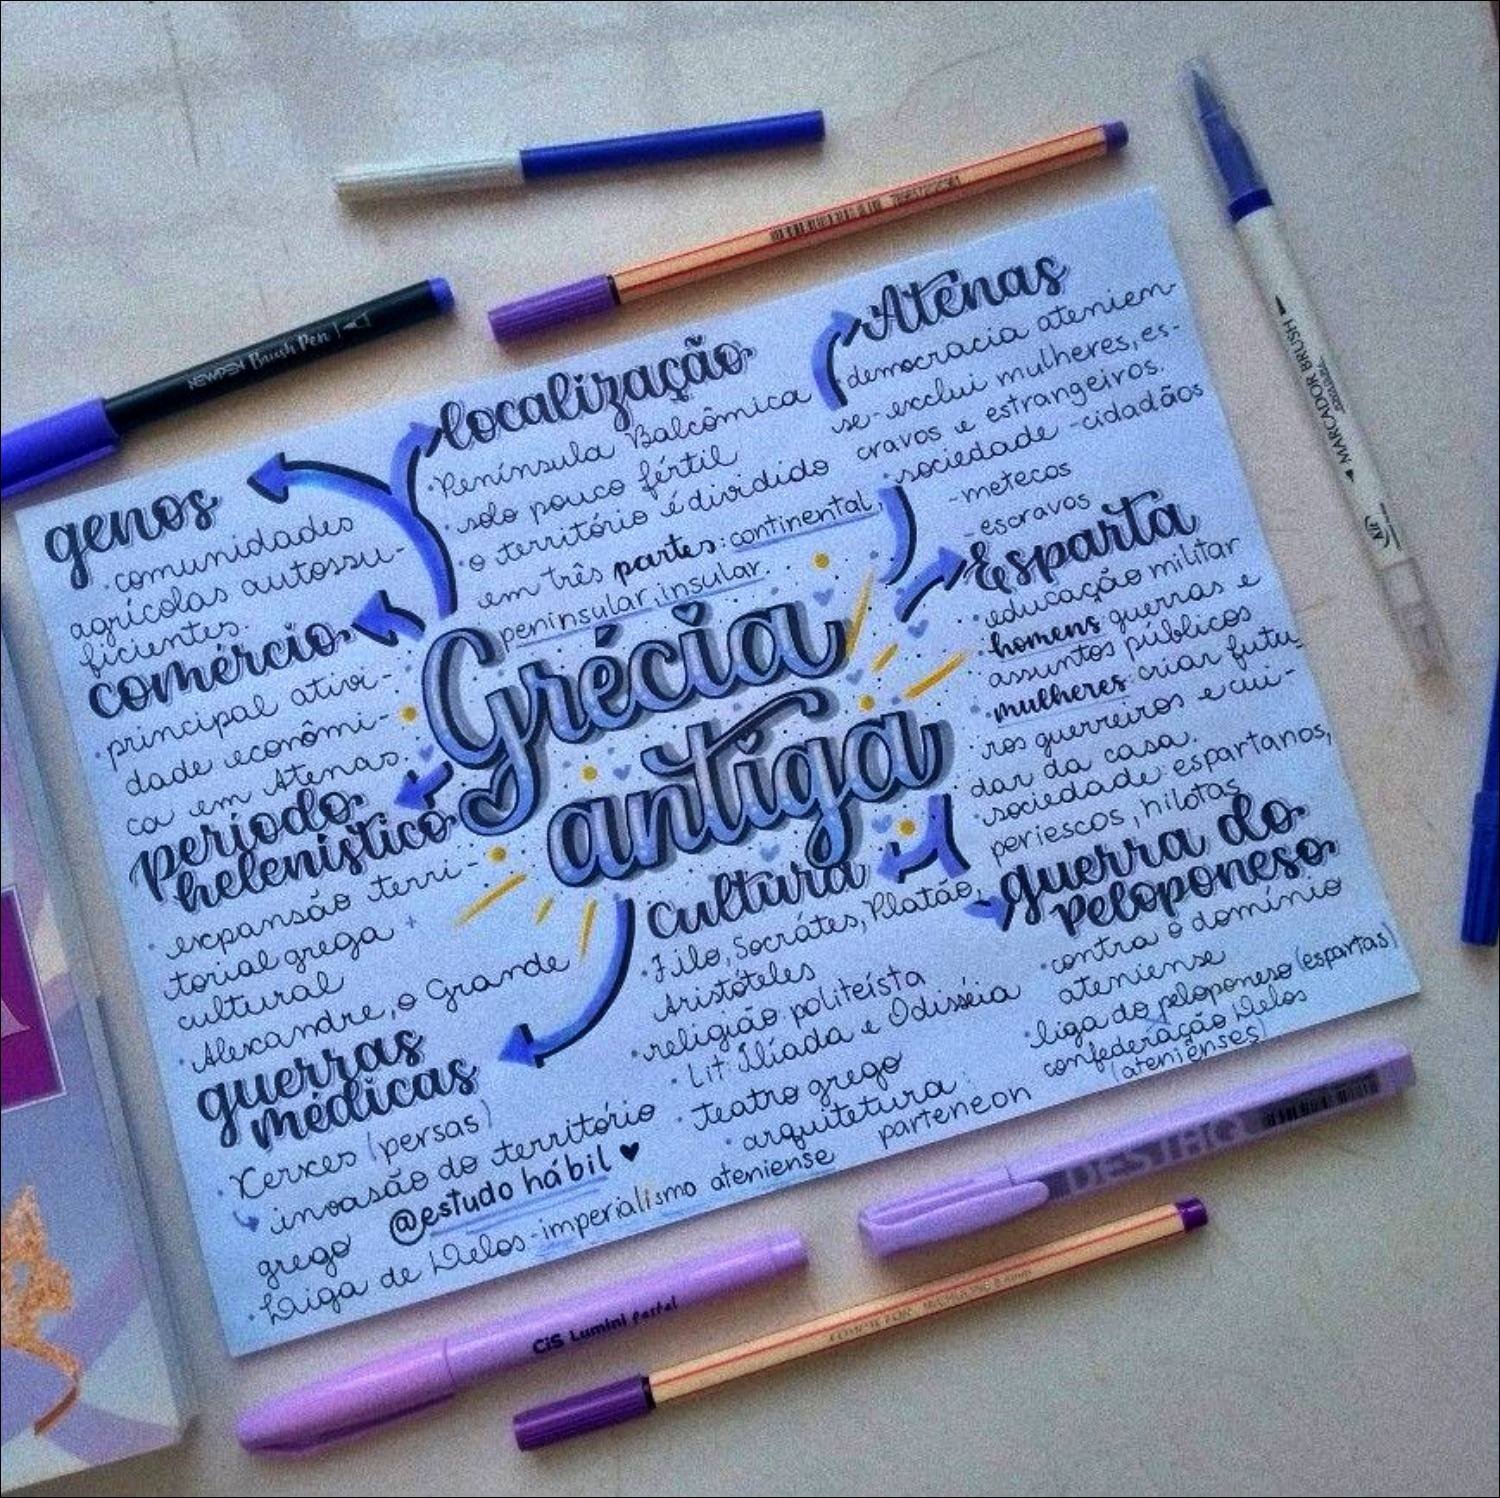 Grécia
antiga
genos
·comunidades
agrícolas autossu-
ficientes.
comércio
·principal ativi-
dade econômi-
ca em Atenas
período
helenístico
·expansão terri-
torial grega +
cultural
·Alexandre, o Grande
guerras
médicas
·Xerxes (persas)
invasão do território
grego
@estudo hábil ♥
·Liga de Delos-imperialismo ateniense
localização
·Península Balcômica
·solo pouco fértil
·o território é dividido
em três partes: continental,
peninsular, insular
Atenas
·democracia atenien-
se-exclui mulheres, es-
cravos e estrangeiros.
·sociedade -cidadãos
-metecos
-escravos
Esparta
·educação militar
·homens guerras e
assuntos públicos
·mulheres: criar futu-
ros guerreiros e cui-
dar da casa.
·sociedade: espartanos,
periescos, hilotas
cultura
·Filo, Socrátes, Platão,
Aristóteles
·religião politeísta
·Lit: Ilíada e Odisséia
·teatro grego
·arquitetura:
parteneon
guerra do
peloponeso
·contra o domínio
ateniense
·liga do peloponeso (espartas)
confederação Delos
(atenienses)
NEWPEN Brush Pen
MARCADOR BRUSH
CiS Lumini pastel